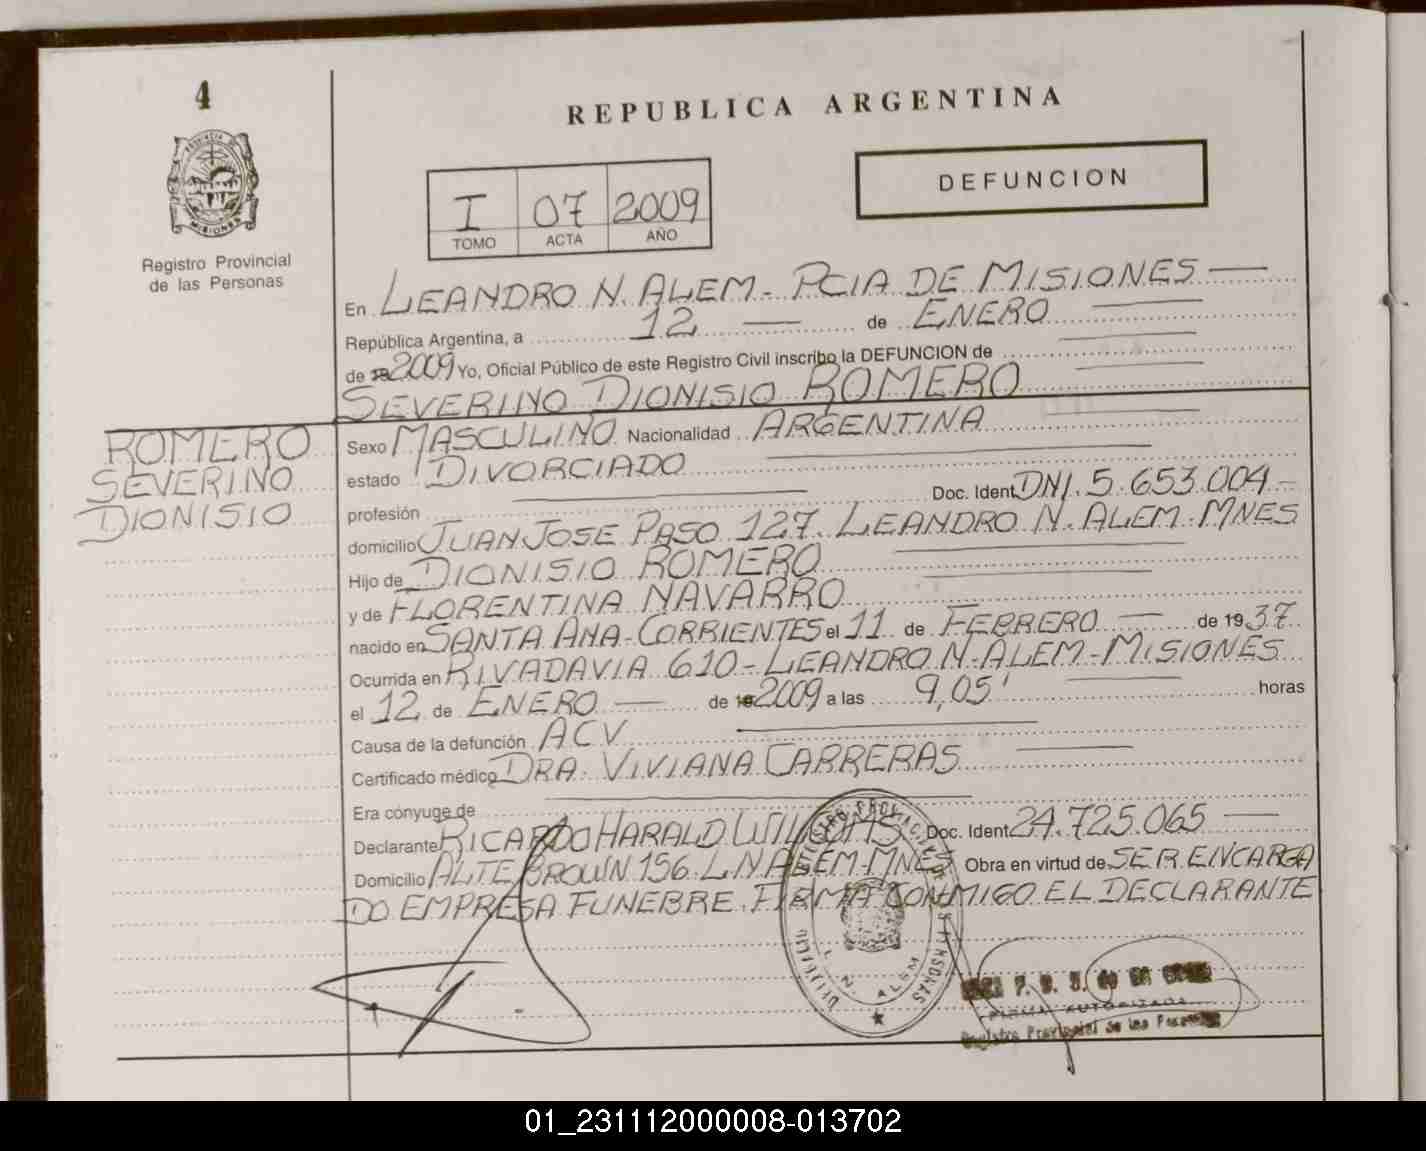 4
REPUBLICA ARGENTINA
PROVINCIA DE
MISIONES
Registro Provincial
de las Personas
I 07 2009
TOMO ACTA AÑO
DEFUNCION
En LEANDRO N. ALEM - PCIA DE MISIONES
República Argentina, a 12 de ENERO
de 2009 Yo, Oficial Público de este Registro Civil inscribo la DEFUNCION de
SEVERINO DIONISIO ROMERO
ROMERO
SEVERINO
DIONISIO
Sexo MASCULINO Nacionalidad ARGENTINA
estado DIVORCIADO
profesión Doc. Ident DNI. 5.653.004
domicilio JUAN JOSE PASO 127. LEANDRO N. ALEM. MNES
Hijo de DIONISIO ROMERO
y de FLORENTINA NAVARRO
nacido en SANTA ANA - CORRIENTES el 11 de FEBRERO de 1937
Ocurrida en RIVADAVIA 610 - LEANDRO N. ALEM - MISIONES
el 12 de ENERO de 2009 a las 9,05' horas
Causa de la defunción ACV
Certificado médico DRA. VIVIANA CARRERAS
Era cónyuge de
Declarante RICARDO HARALD Doc. Ident 24.725.065
Domicilio ALTE BROWN 156. L.N ALEM - MNES Obra en virtud de SER ENCARGA
DO EMPRESA FUNEBRE. FIRMA CONMIGO EL DECLARANTE
L. N. ALEM
FIRMA AUTORIZADA
Registro Provincial de las Personas
01_231112000008-013702